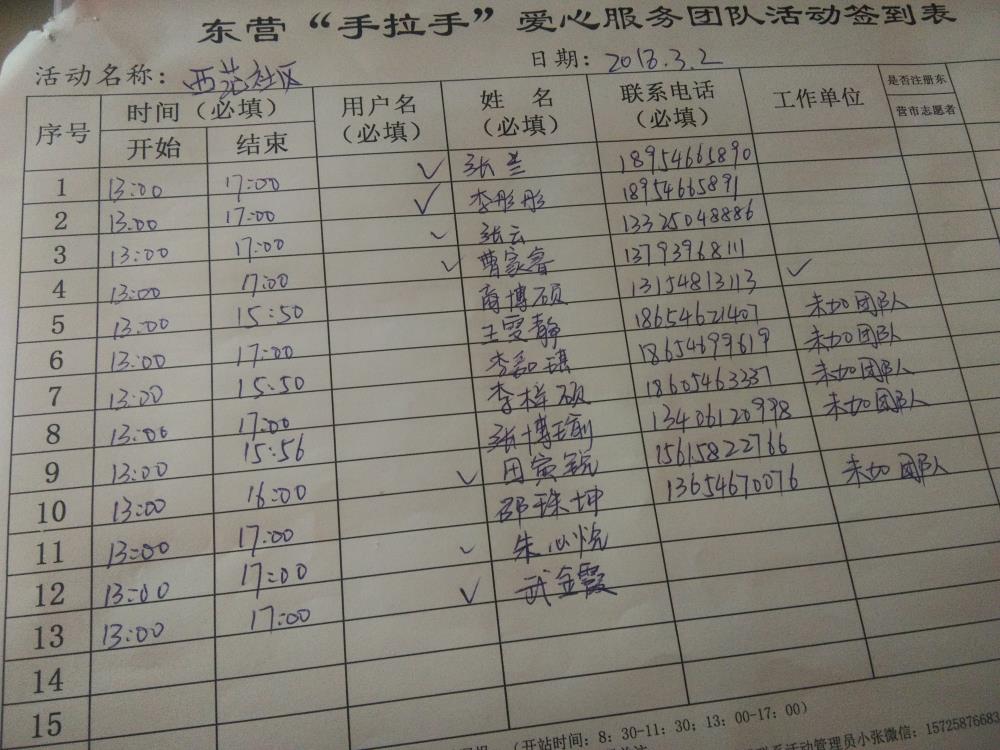 东营“手拉手”爱心服务团队活动签到表
活动名称：西范社区 日期：2013.3.2
序号 时间（必填） 用户名（必填） 姓名（必填） 联系电话（必填） 工作单位 是否注册东营市志愿者
开始 结束
1 13:00 17:00 ✓ 张兰 18954665890
2 13:00 17:00 ✓ 李彤彤 18954665891
3 13:00 17:00 ✓ 张云 13325048886
4 13:00 17:00 ✓ 曹家睿 13793968111
5 13:00 15:50 商博硕 13154813113 ✓
6 13:00 17:00 王雯静 18654621407 未加团队
7 13:00 15:50 李磊琪 18654699619 未加团队
8 13:00 17:00 李梓硕 18605463337 未加团队
9 13:00 15:56 张博瑜 13406120998 未加团队
10 13:00 16:00 ✓ 田寅锐 15615822766
11 13:00 17:00 邵珠坤 13654670076 未加团队
12 13:00 17:00 ✓ 朱心悦
13 13:00 17:00 ✓ 武金霞
14
15
（开站时间：8：30-11：30；13：00-17：00）
联系活动管理员小张微信：15725876683